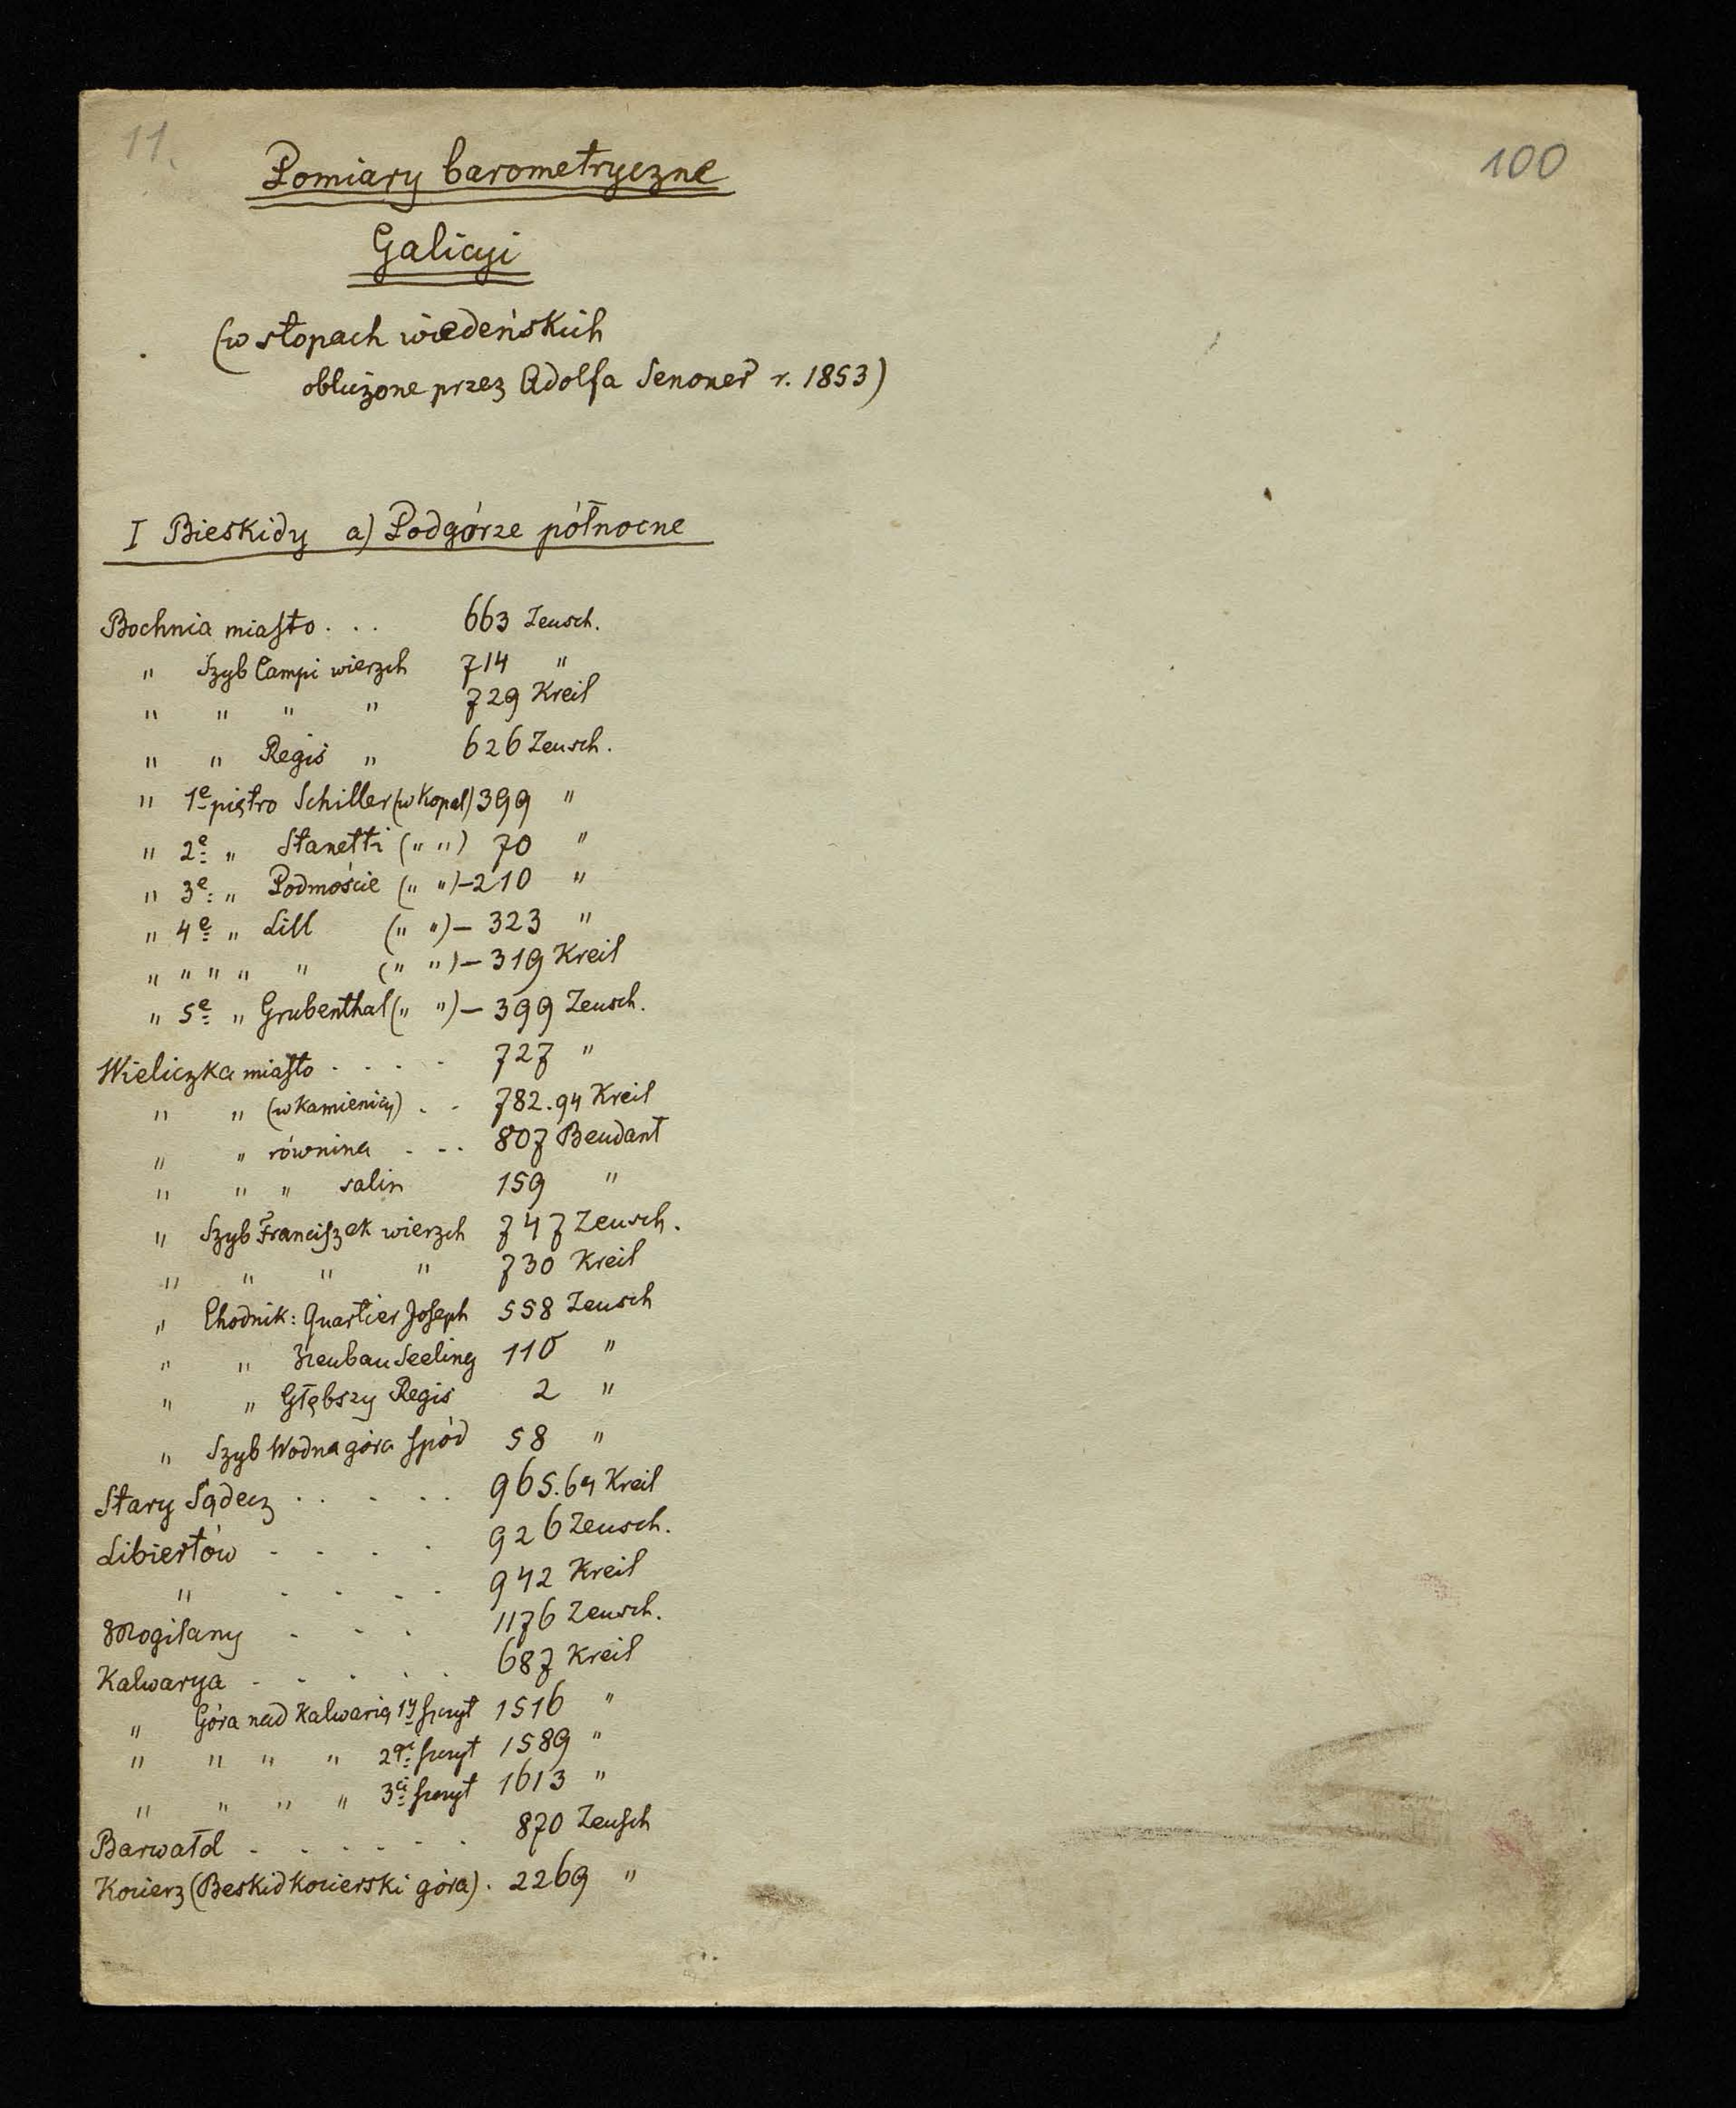 11.
100
Pomiary barometryczne
Galicyi
(w stopach wiedeńskich
obliczone przez Adolfa Senoner r. 1853)
I Bieskidy a) Podgórze północne
Bochnia miasto . . . 663 Zeusch.
" Szyb Campi wierzch 714 "
" " " " 729 Kreil
" " Regis " 626 Zeusch.
" 1e piętro Schiller (w Kopal) 399 "
" 2e " Stanetti (" ") 70 "
" 3e " Podmoście (" ") -210 "
" 4e " Lill (" ") - 323 "
" " " " " (" ") - 319 Kreil
" 5e " Grubenthal (" ") - 399 Zeusch.
Wieliczka miasto . . . . 727 "
" " (w kamienicy) . . 782.94 Kreil
" " równina . . . 807 Beudant
" " " salin 159 "
" Szyb Franciszek wierzch 747 Zeusch.
" " " " 730 Kreil
" Chodnik: Quartier Joseph 558 Zeusch
" " Neubau Seeling 110 "
" " Głębszy Regis 2 "
" Szyb Wodna góra spód 58 "
Stary Sądecz . . . . . 965.64 Kreil
Libiertów . . . . 926 Zeusch.
" . . . . 942 Kreil
Mogilany . . . 1176 Zeusch.
Kalwarya . . . . . 687 Kreil
" Góra nad Kalwarią 1y szczyt 1516 "
" " " " 2gi szczyt 1589 "
" " " " 3ci szczyt 1613 "
Barwałd . . . . . . 870 Zeusch
Kocierz (Beskid kocierski góra) . 2269 "